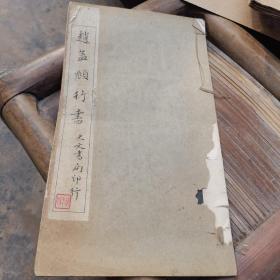 趙孟頫行書
大文書局印行